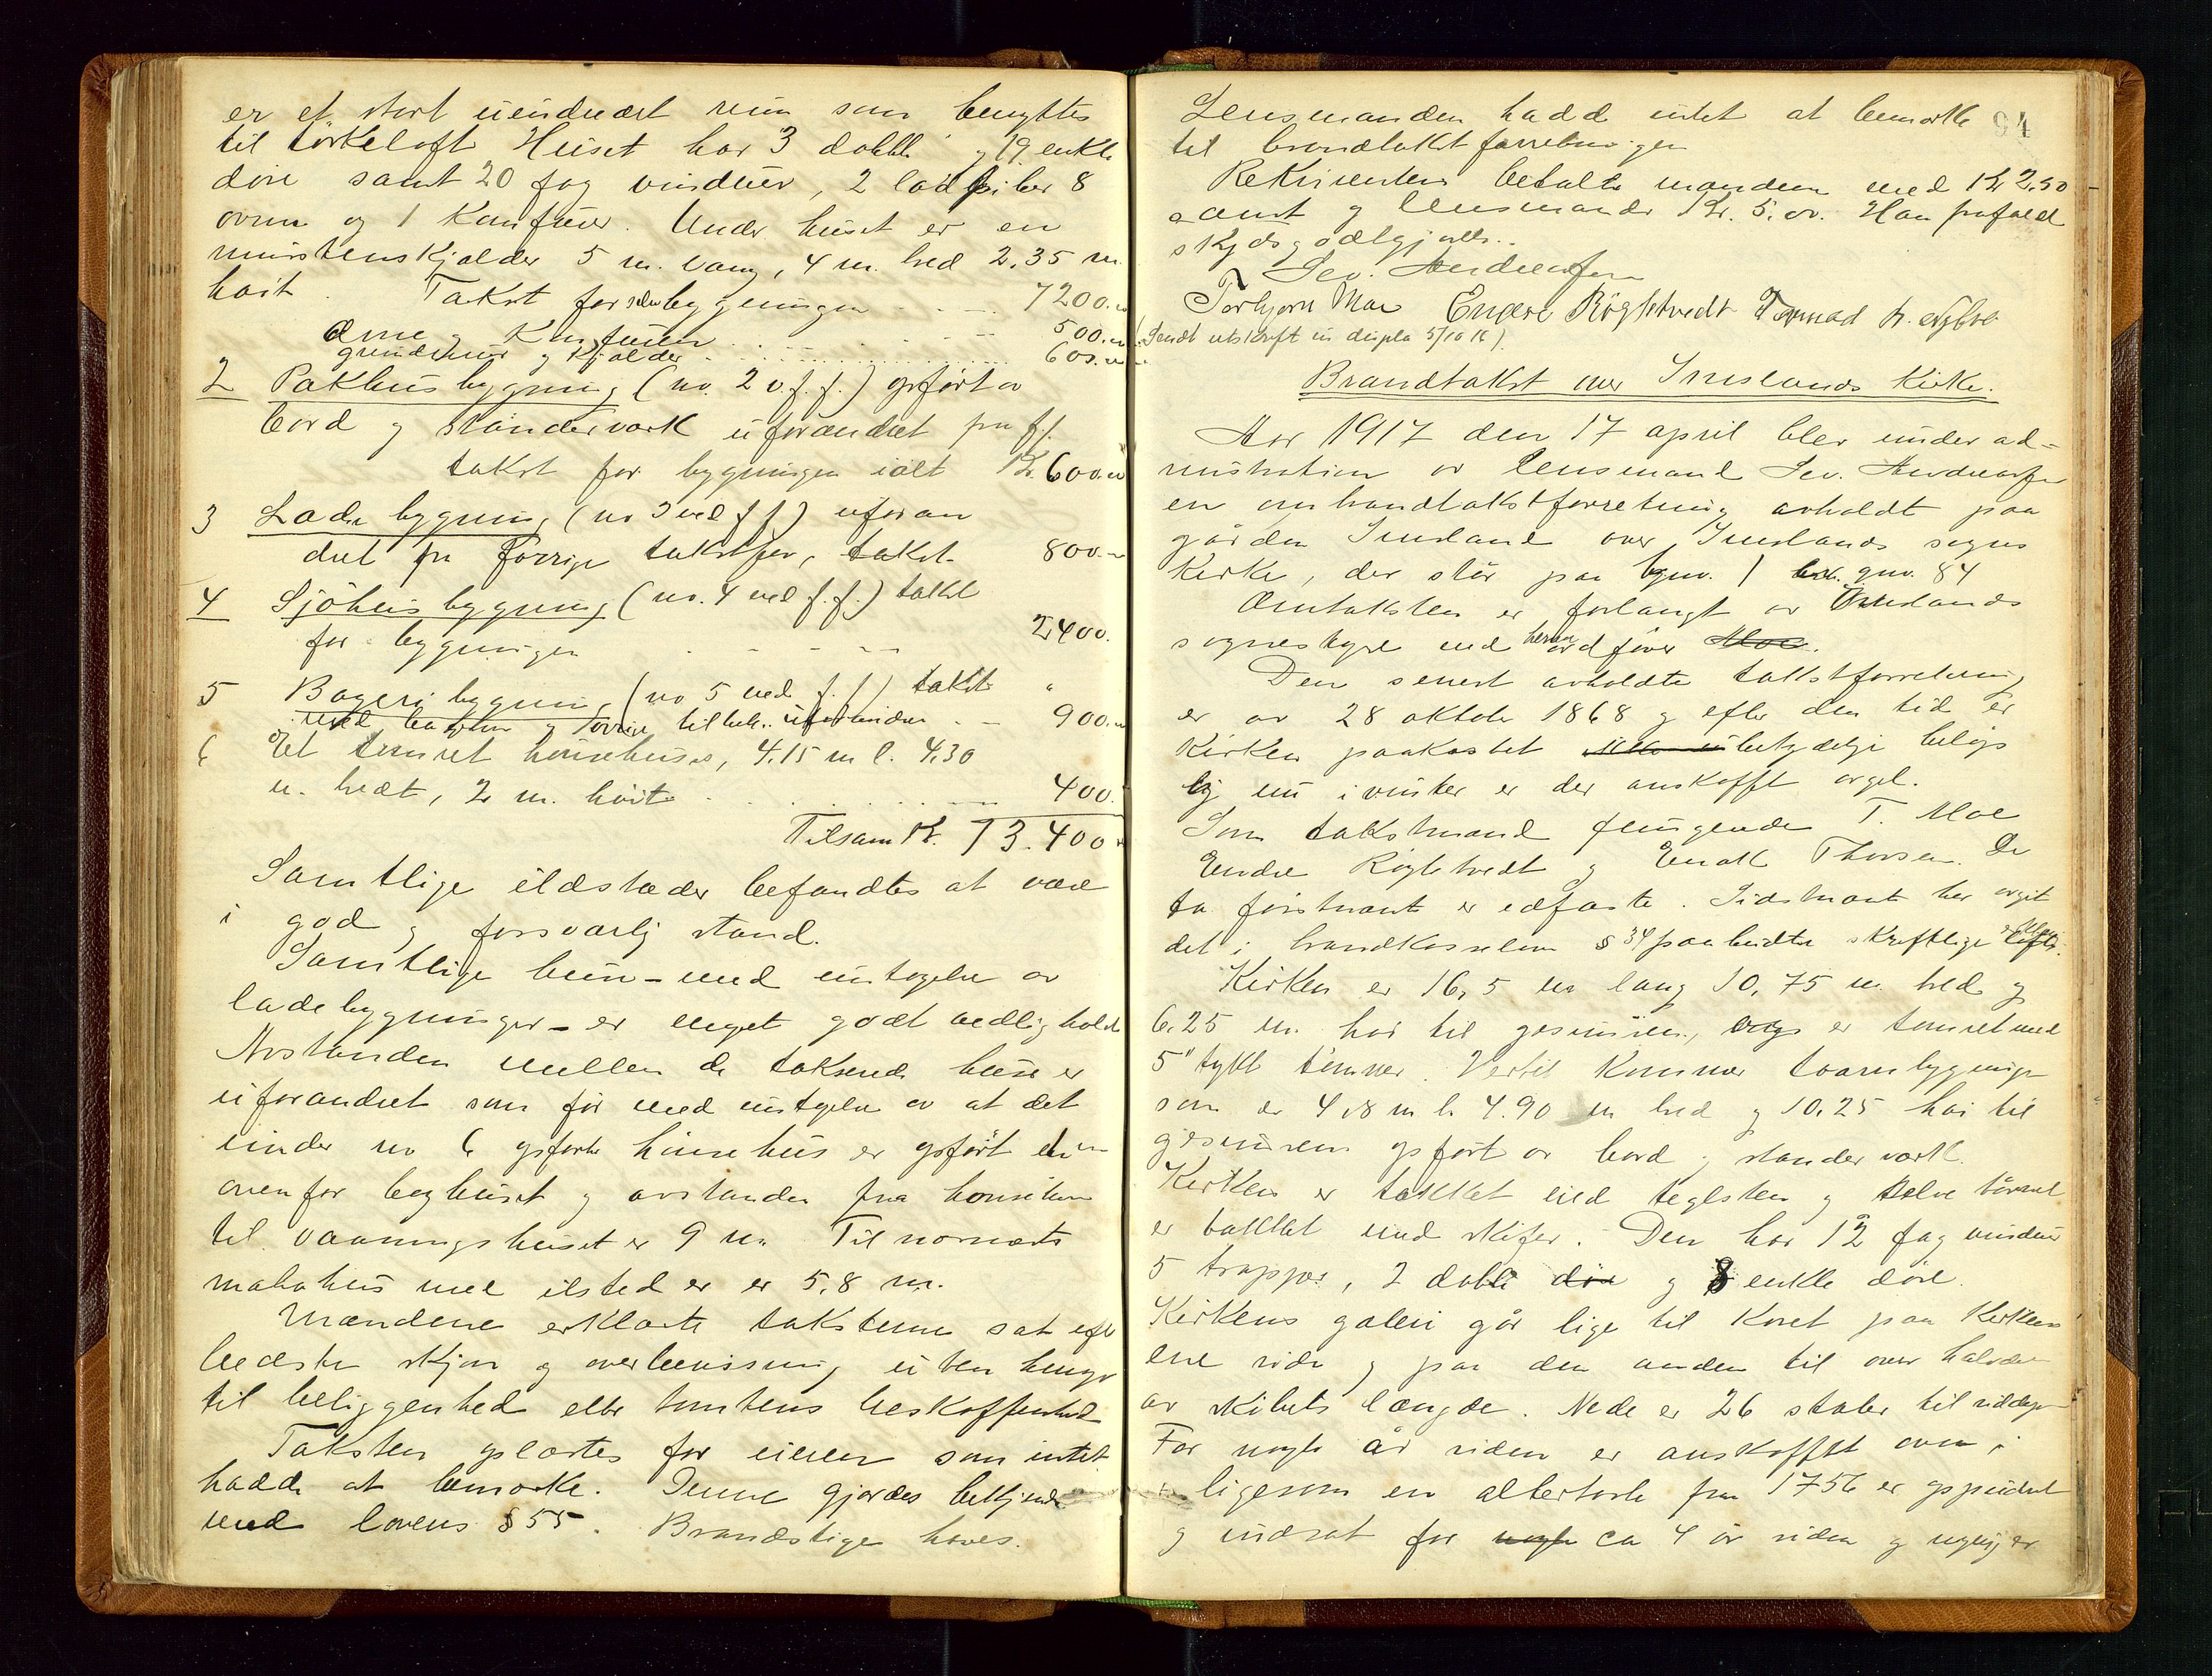 er et stort uindredt rum som benyttes
til tørkeloft Huset har 3 doble og 19 enkle
døre samt 20 fag vinduer, 2 lodpiber 8
ovne og 1 Komfuer. Under huset er en
murstenskjelder 5 m. lang, 4 m. bred 2,35 m
høit. Takst for selve bygningen 7200.
ovne og Komfuren 500.
grundmur og kjelder 600.
2 Pakhusbygning (no. 2 v. f. f.) opført av
bord og standerverk uforandret fra f.f.
takst for bygningen ialt Kr. 600.
3 Ladebygning (no 3 ved f f) uforan
dret fra forrige takstfor, takst 800.
4 Sjøhusbygning (no. 4 ved f. f.) takst
for bygningen 2400.
5 Bageribygning (no 5 ved f. f) takst
med bakerovn og tilbeh. uforandret 900.
6 Et tømret hønsehus, 4.15 m l. 4.30
m. bredt, 2 m. høit 400.
Tilsam Kr. 13.400
Samtlige ildsteder befandtes at være
i god og forsvarlig stand.
Samtlige huse - med undtagelse av
ladebygninger - er meget godt vedligholdt
Avstanden mellem de takserede huse er
uforandret som før med undtagelse av at det
under no 6 opførte hønsehus er opført
ovenfor bryghuset og avstanden fra hønsehuset
til vaaningshuset er 9 m. Til nærmeste
nabohus med ilsted er er 5,8 m.
Mændene erklærte taksterne sat efter
bedste skjøn og overbevisning uten hensyn
til beliggenhed eller tomtens beskaffenhed
Taksten oplæstes for eieren som intet
hadde at bemerke. Denne gjordes bekjendt
med lovens § 55. Brandstige haves.
Lensmanden hadd intet at bemerke 94
til brandtakstforretningen
Rekvirenten betalte mændene med Kr 2,50
samt og lensmanden Kr. 5.00. Han frafaldt
skydsgodtgjørelse.
Sev. Andreassen
Torbjørn Moe Endre Røgletvedt Tormod
(Sendt utskrift in dupla 5/10 16)
Brandtakst over Imslands Kirke.
Aar 1917 den 17 april blev under ad-
ministration av lensmand Sev. Andreassen
en ombrandtakstforretning avholdt paa
gården Imsland over Imslands sogns
Kirke, der står paa gnr. 1 gnr. 84
Omtaksten er forlangt av Imslands
sognestyre ved ordfører Moe.
Den senest avholdte takstforretning
er av 28 oktober 1868 og efter den tid er
Kirken paakostet betydelige beløp
og nu i vinter er der anskafft orgel.
Som takstmænd fungerede T. Moe
Endre Røgletvedt og Enok Thorsen. De
to førstnævnte er edfæste. Sidstnævnte har avgit
det i brandkasseloven § 34 paabudte skriftlige løfte.
Kirken er 16,5 m lang 10,75 m. bred og
6,25 m. høi til gesimsen, er tømret med
5" tykt tømmer. Vertil kommer taarnbygningen
som er 4,8 m l. 4.90 m bred og 10,25 høi til
gesimsen opført av bord og standerverk.
Kirken er tækket med teglsten og selve tårnet
er tækket med skifer. Den har 12 fag vinduer
5 trapper, 2 doble døre og 8 enkle døre.
Kirkens galeri går lige til Koret paa Kirkens
ene side og paa den anden til over halvdelen
av skibets længde. Nede er 26 stoler til
For nogle år siden er anskafft ovn i
ligesom en altertavle fra 1756 er oppudset
og indsat for nogle ca 4 år siden og nylig er